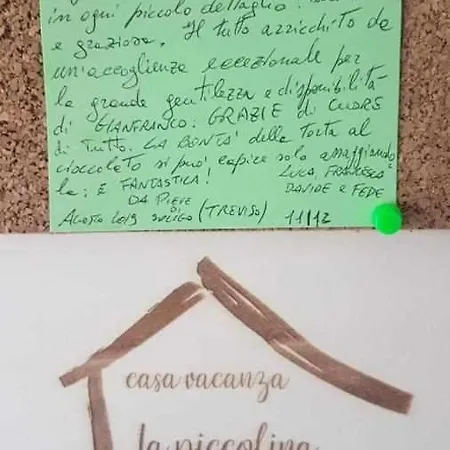 in ogni piccolo dettaglio.
e graziosa. Il tutto arricchito da
un'accoglienza eccezionale per
la grande gentilezza e disponibilità
di GIANFRANCO. GRAZIE di CUORE
di tutto. LA BONTA' della torta al
cioccolato si può capire solo assaggiando
la: È FANTASTICA!
LUCA, FRANCESCA
DAVIDE e FEDE
DA PIEVE
DI
AGOSTO 2019 SOLIGO (TREVISO) 11/12
casa vacanza
la piccolina